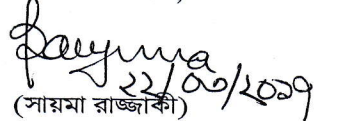 Sayma
২২/০৩/২০১৭
(সায়মা রাজ্জাকী)